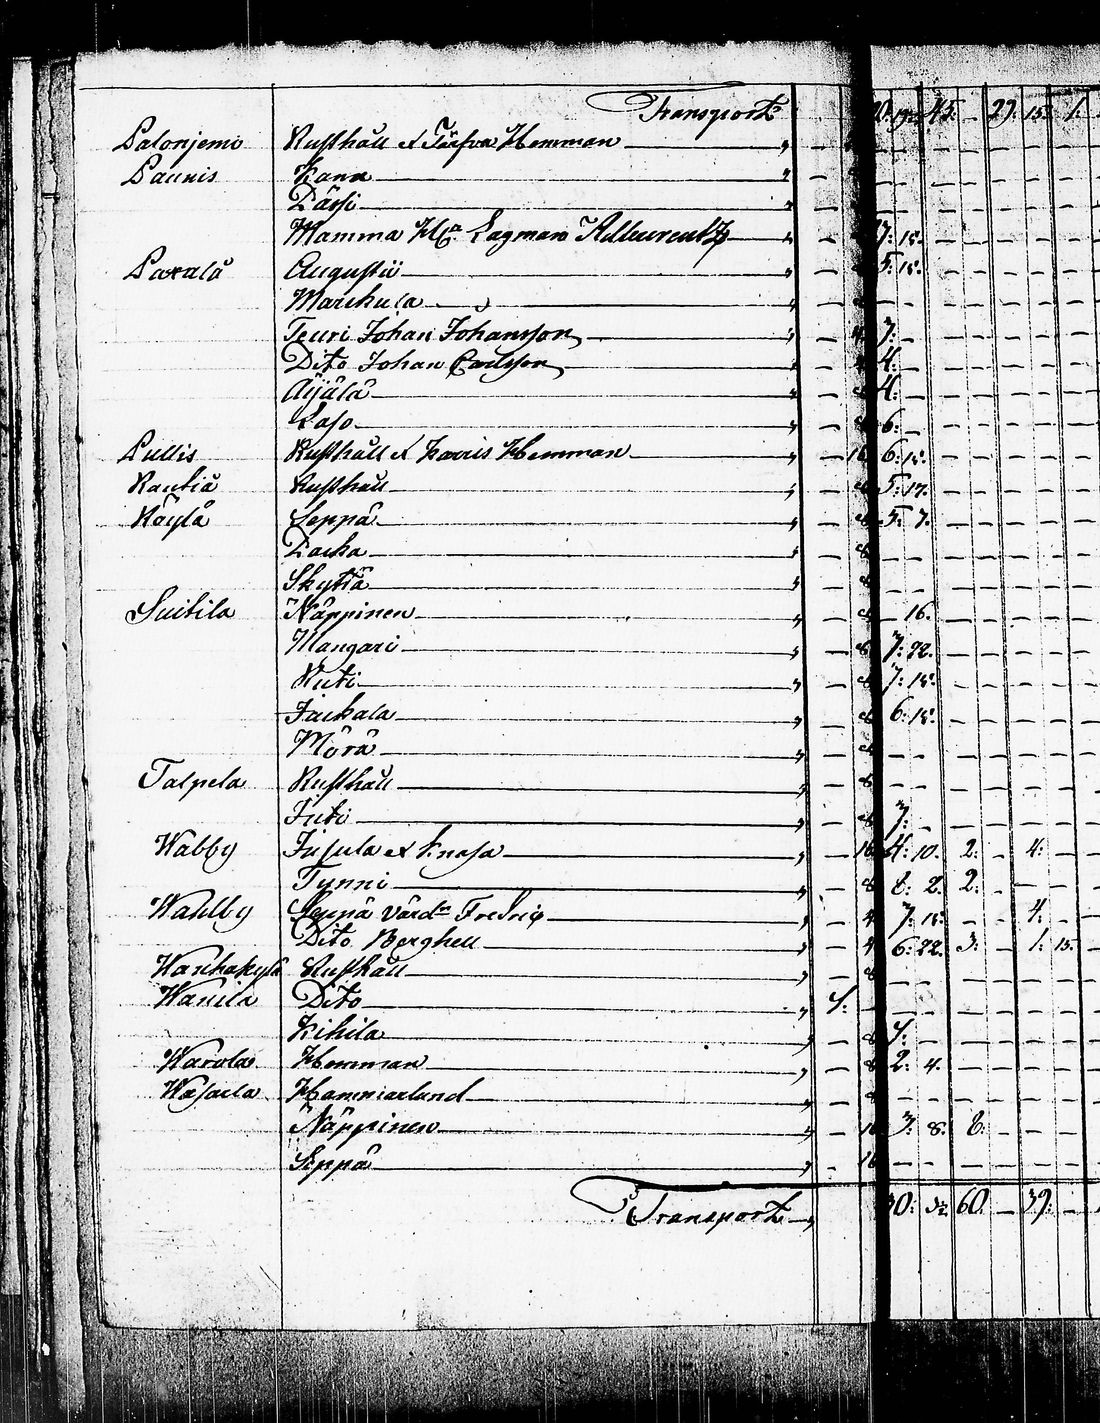 Transport 45. — 29. 15. 1.
Palonjemi Rusthåll et Förswa Hemman — — —
Paunis Kann — — —
Pärsi — — —
Mamma H:s Lagman Adlercreutz — 7: 15. — —
Paxalä Augusti — 5: 15. — —
Marckula — — —
Teuri Johan Johansson — 7: — —
Dito Johan Carlsson — 4: — —
Äijälä — 4: — —
Laso — 6: — —
Pullis Rusthåll et Harris Hemman — 16 6: 15. — —
Rautiä Rusthåll — 5: 17. — —
Röylä Seppä — 5. 7. — —
Packa — 8 — —
Skyttä — 8 — —
Suitila Näppinen — — 16. — —
Mangari — 8 7: 22. — —
Ruti — 8 7: 15. — —
Jackala — 8 6: 15. — —
Mörä — — —
Talpela Rusthåll — 8 — —
Juti — 7. — —
Wabby Jusula et Knasa — 16 4: 10. 2: — 4: —
Tynni — 8 8: 2. 2: — —
Wahlby Seppä värd:n Fredric — 4 7: 15. — — 4. —
Dito Berghell — 4 6: 22. 3: — 1: 15.
Wanhakylä Rusthåll — 8 — —
Wanila Dito — — —
Kihila — 8 — —
Warola Hemman — 8 2: 4. — —
Wasarla Hammarland — 8 — —
Näppinen — 16 3: 8. 6: — —
Seppä — 16 — —
Transport — 60. — 39: —